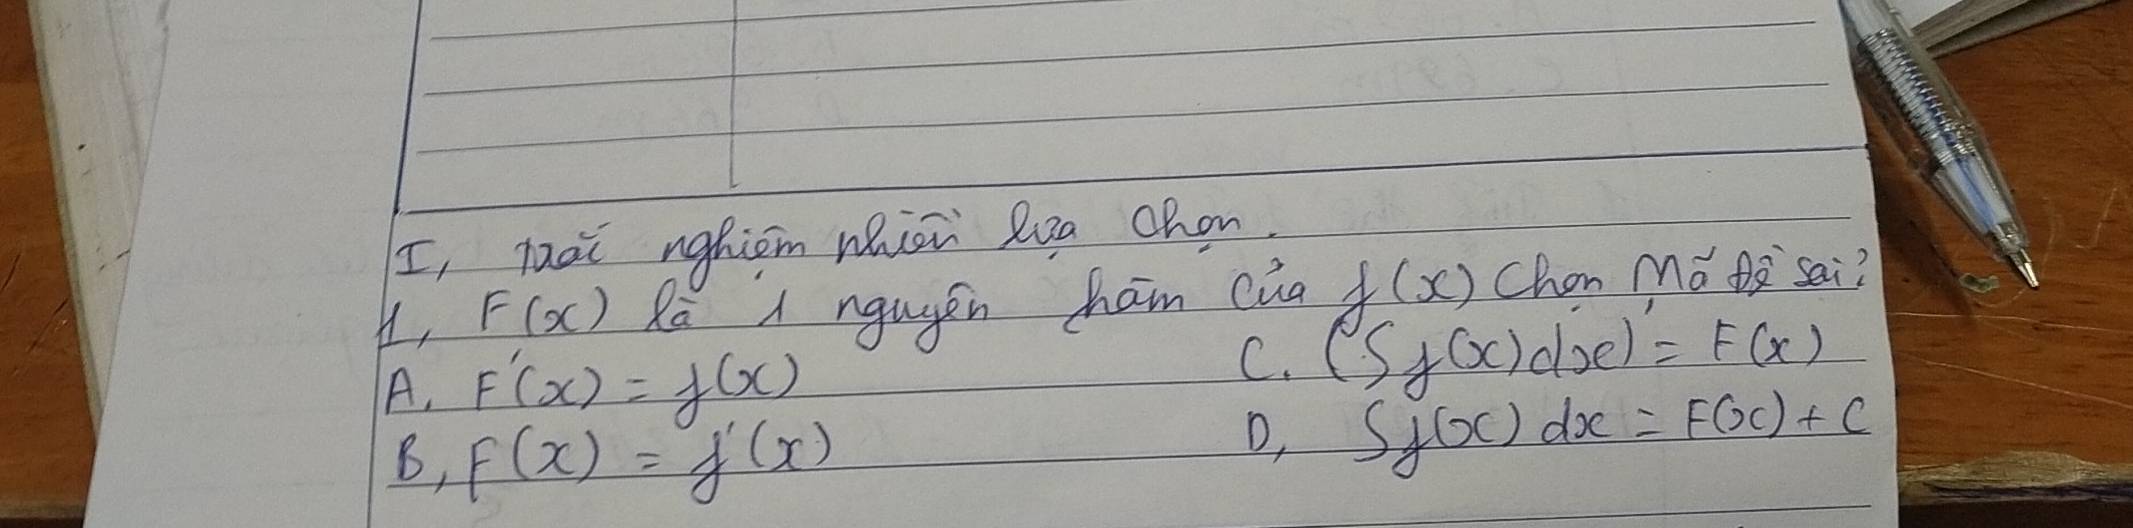 I, trắc nghiệm nhiều lựa chọn.
1, F(x) là 1 nguyên hàm của f(x) Chọn Mđ đề sai?
A, F'(x) = f(x)
C. (∫f(x)dx)' = F(x)
B, F(x) = f'(x)
D, ∫f(x) dx = F(x) + C